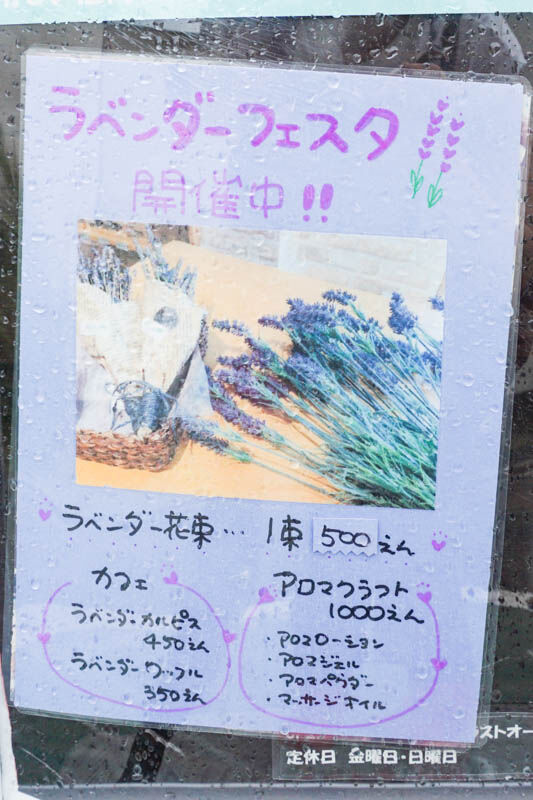 ラベンダーフェスタ
開催中!!
ラベンダー花束… 1束 500えん
カフェ
ラベンダーカルピス
450えん
ラベンダーワッフル
350えん
アロマクラフト
1000えん
・アロマローション
・アロマジェル
・アロマパウダー
・マッサージオイル
ラストオー
定休日 金曜日・日曜日